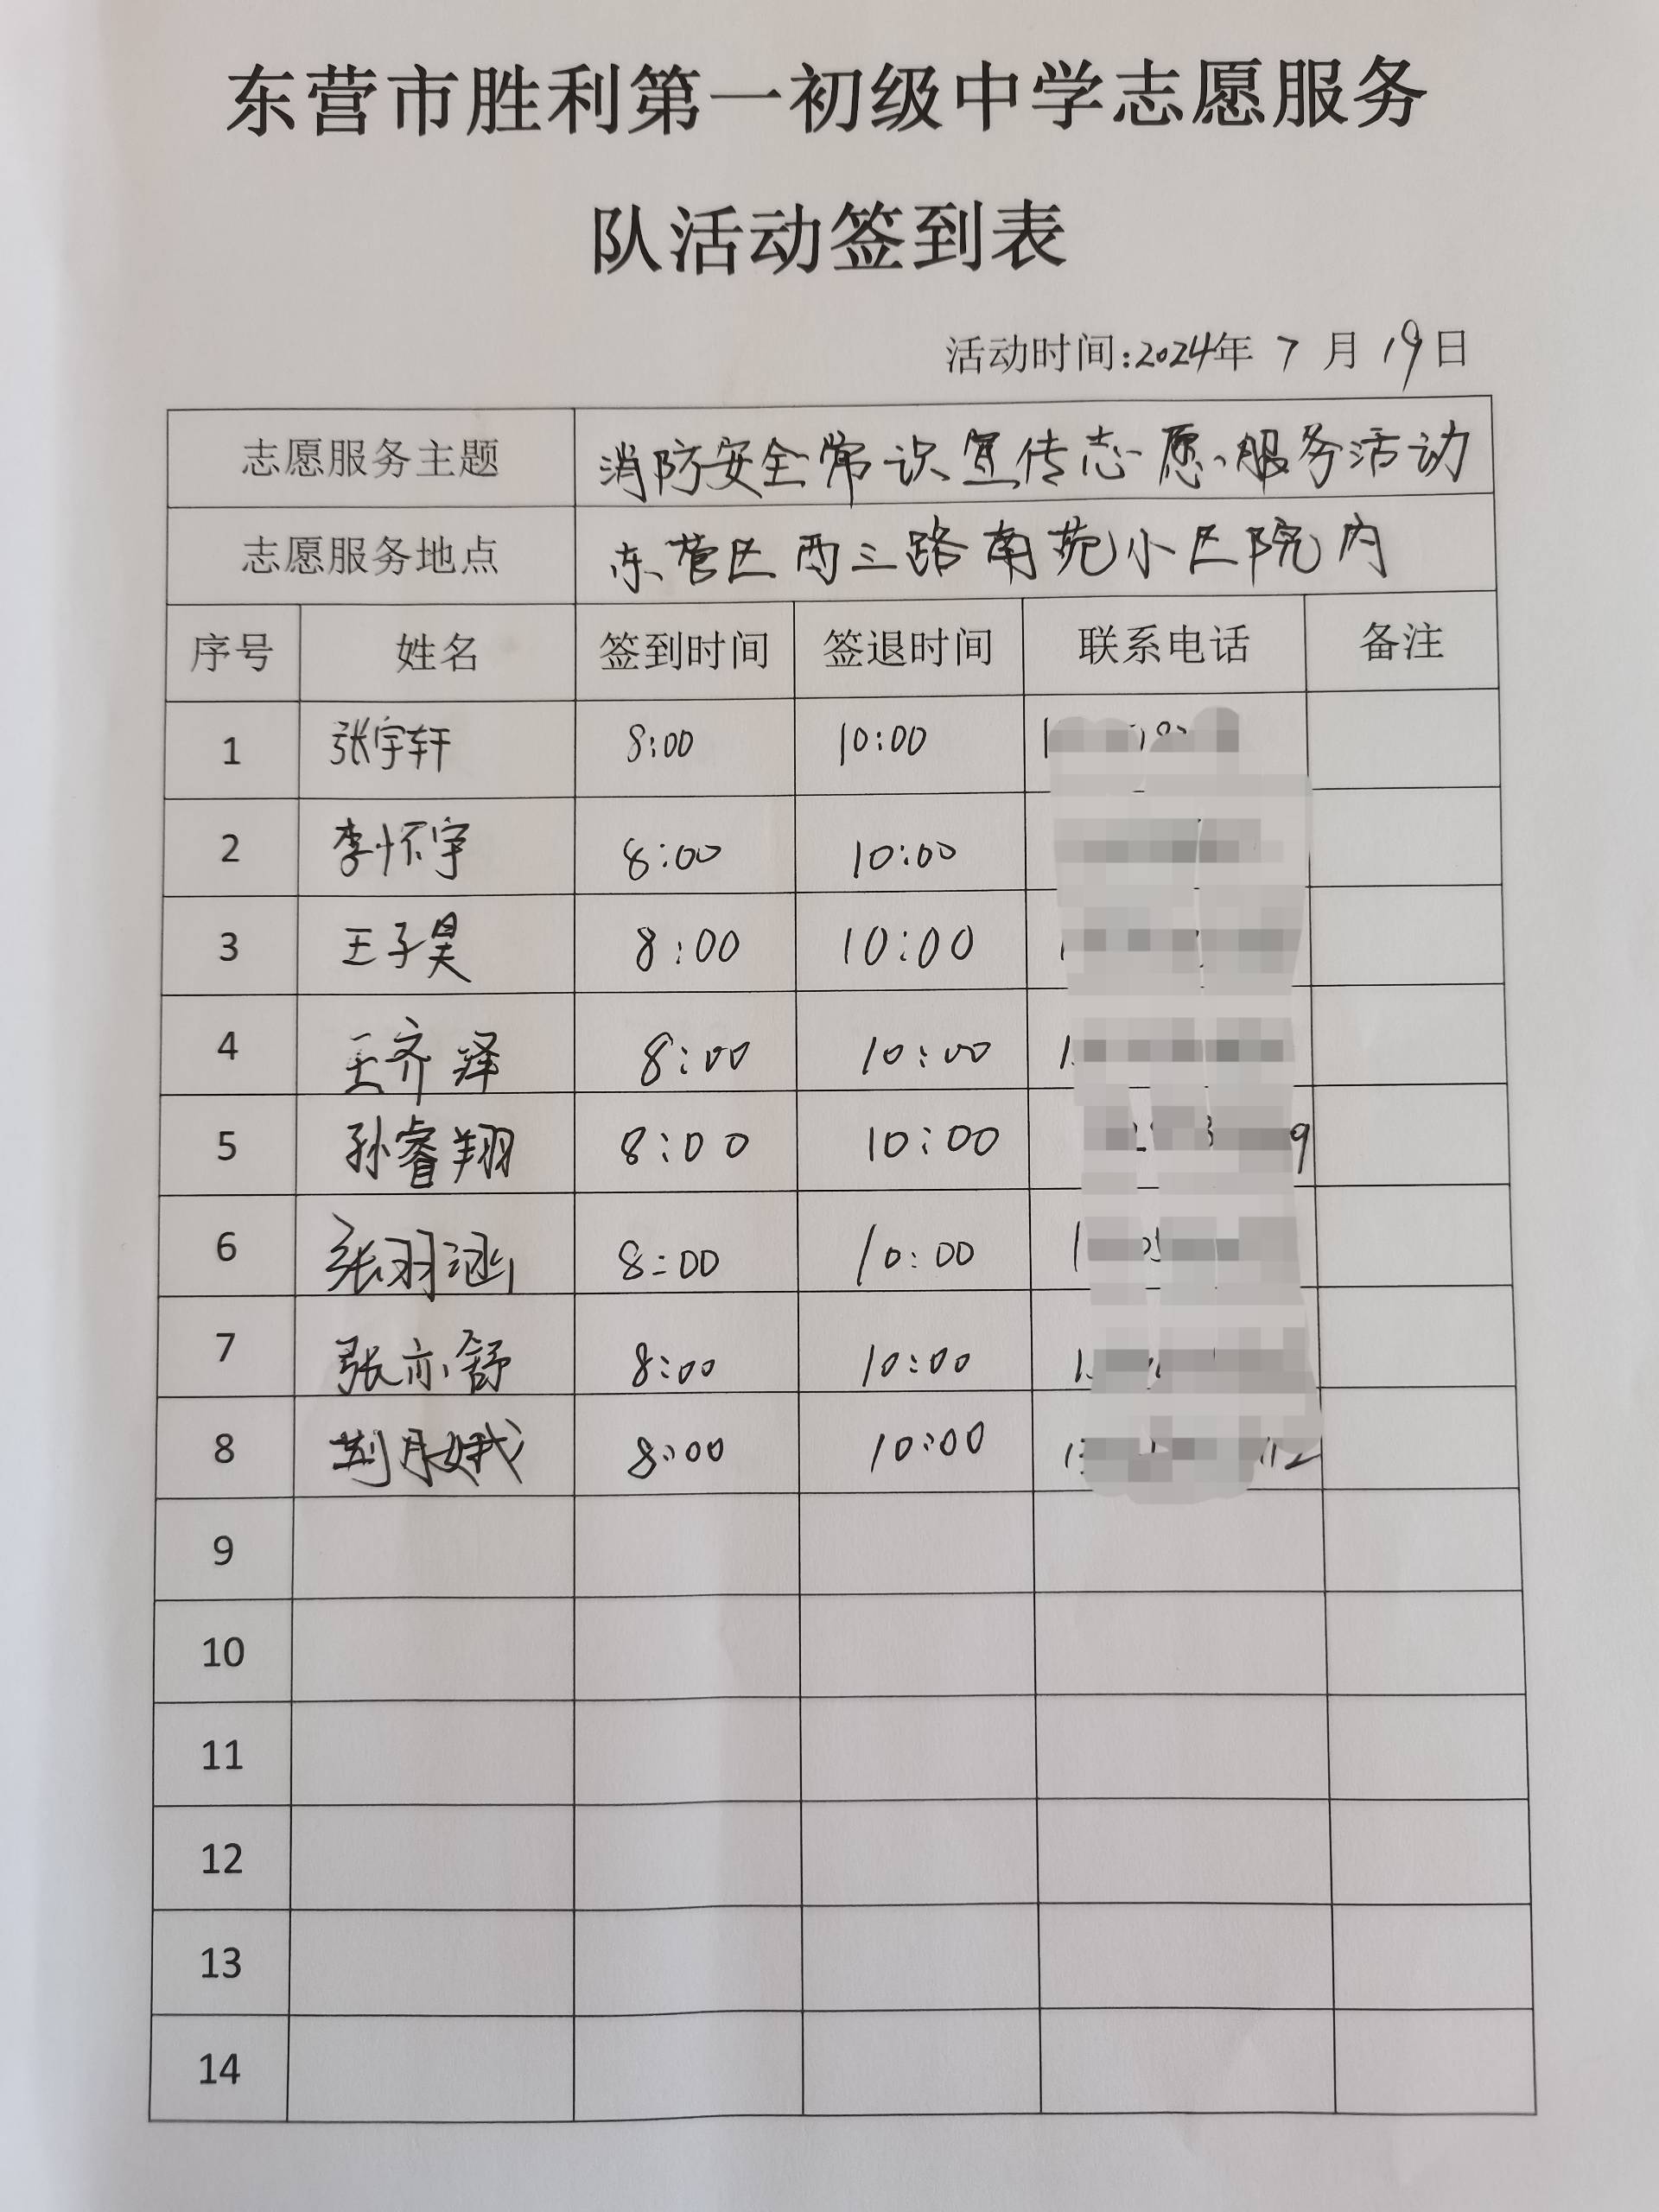 东营市胜利第一初级中学志愿服务
队活动签到表
活动时间:2024年 7 月 19日
志愿服务主题 消防安全常识宣传志愿服务活动
志愿服务地点 东营区西三路南苑小区院内
序号 姓名 签到时间 签退时间 联系电话 备注
1 张宇轩 8:00 10:00
2 李怀宇 8:00 10:00
3 王子昊 8:00 10:00
4 王齐泽 8:00 10:00
5 孙睿翔 8:00 10:00
6 张羽涵 8:00 10:00
7 张亦舒 8:00 10:00
8 荆月娥 8:00 10:00
9
10
11
12
13
14